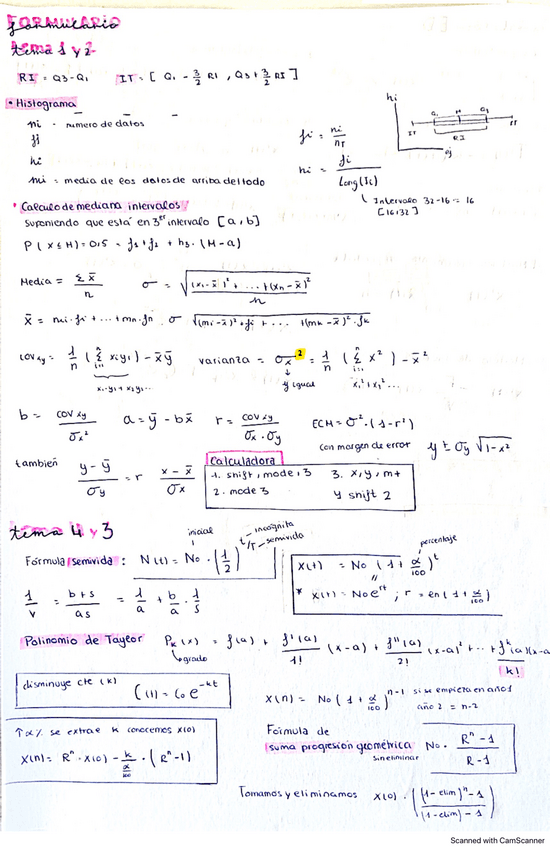 Formulario
tema 1 y 2
RI = Q3-Q1   IT = [ Q1 - 3/2 RI , Q3 + 3/2 RI ]
• Histograma
ni - número de datos
fi
hi
mi = media de los datos de arriba del todo
fi = ni/nT
hi = fi/Long(Ic)
Intervalo 32-16 = 16
[16,32]
hi
Q1 M Q3
IT RI IT
• Calculo de mediana intervalos
suponiendo que está en 3er intervalo [a,b]
P(x≤M) = 0,5 = f1+f2 + h3·(M-a)
Media = Σx̄/n   σ = √((x1-x̄)²+...+(xn-x̄)²/n)
x̄ = m1·f1+...+mn·fn   σ √((m1-x̄)²+f1+... +(mk-x̄)²·fk)
cov xy = 1/n (Σ xiyi) - x̄ȳ   varianza = σx² = 1/n (Σ x²) - x̄²
x1·y1+x2y2...   y igual   x1²+x2²...
b = cov xy/σx²   a = ȳ - bx̄   r = cov xy/σx·σy   ECM = σ²·(1-r²)
con margen de error   y ± σy √1-r²
también   y-ȳ/σy = r x-x̄/σx
Calculadora
1. shift, mode, 3   3. x,y, m+
2. mode 3   4 shift 2
tema 4 y 3
Fórmula semivida: N(t) = No·(1/2)^t/T
inicial
t - incognita
T - semivida
porcentaje
x(t) = No (1 + α/100)^t
* x(t) = No e^rt ; r = ln(1 + α/100)
1/v = b+s/as = 1/a + b/a · 1/s
Polinomio de Taylor   Pk(x) = f(a) + f'(a)/1! (x-a) + f''(a)/2! (x-a)² + ... + f^k(a)(x-a)/k!
grado
disminuye cte (k)
C(t) = Co e^-kt
x(n) = No (1 + α/100)^n-1 si se empieza en año 1
año 2 = n-2
↑α% se extrae k conocemos x(0)
x(n) = R^n · x(0) - k/(α/100) · (R^n-1)
Formula de
suma progresion geométrica   No · R^n-1/R-1
sin eliminar
Tomamos y eliminamos   x(0) · ((1-elim)^n-1/(1-elim)-1)
Scanned with CamScanner